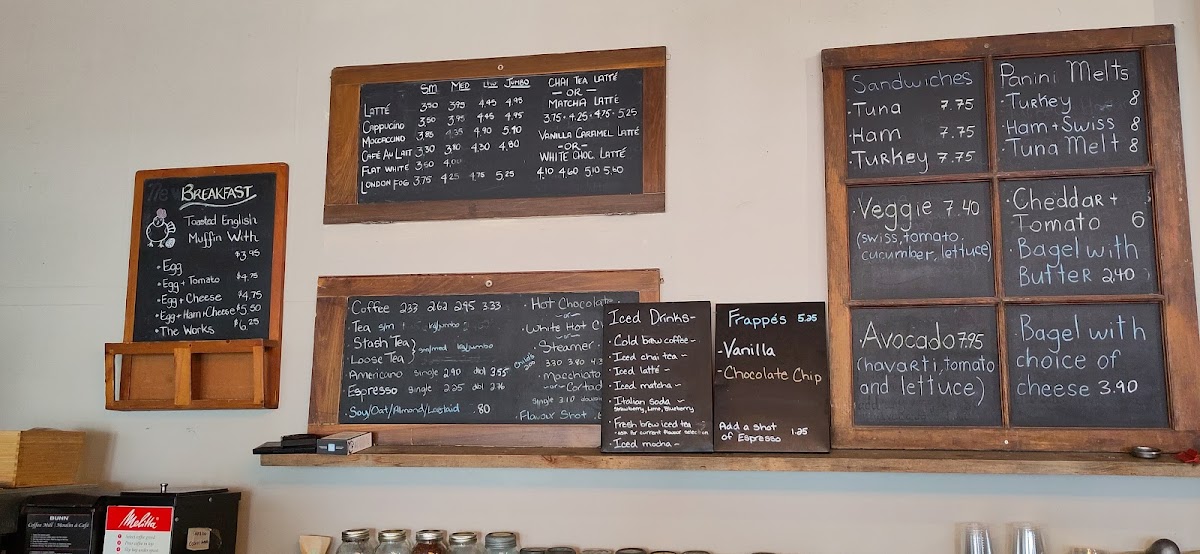 BREAKFAST
Toasted English
Muffin With
$3.95
• Egg
• Egg + Tomato $4.75
• Egg + Cheese $4.75
• Egg + Ham + Cheese $5.50
• The Works $6.25
SM MED JUMBO
LATTÉ 3.50 3.95 4.45 4.95
CAPPUCINO 3.50 3.95 4.45 4.95
MOCCACCINO 3.85 4.35 4.90 5.40
CAFÉ AU LAIT 3.30 3.80 4.30 4.80
FLAT WHITE 3.50 4.00
LONDON FOG 3.75 4.25 4.75 5.25
CHAI TEA LATTÉ
— OR —
MATCHA LATTÉ
3.75 • 4.25 • 4.75 • 5.25
VANILLA CARAMEL LATTÉ
-OR-
WHITE CHOC. LATTÉ
4.10 4.60 5.10 5.60
Coffee 2.33 2.62 2.95 3.33
• Tea s/m
Stash Tea
Loose Tea sm/med lg/jumbo
Americano single 2.90 dbl 3.55
Espresso single 2.25 dbl 2.76
• Soy/Oat/Almond/Lactaid .80
• Hot Chocolate
-or-
White Hot C
-or-
• Steamer
3.30 3.80 4.3
• Macchiato
-or- Cortad
single 3.10
• Flavour Shot
Iced Drinks-
• Cold brew coffee -
• Iced chai tea -
• Iced latté -
• Iced matcha -
• Italian Soda -
Strawberry, Lime, Blueberry
• Fresh brew iced tea
- ask for current flavour selection
• Iced mocha -
Frappés 5.25
- Vanilla
- Chocolate Chip
Add a shot
of Espresso 1.25
Sandwiches
• Tuna 7.75
• Ham 7.75
• Turkey 7.75
Panini Melts
• Turkey 8
• Ham + Swiss 8
• Tuna Melt 8
• Veggie 7.40
(swiss, tomato.
cucumber, lettuce)
• Cheddar +
Tomato 6
• Bagel with
Butter 2.40
• Avocado 7.95
(havarti, tomato
and lettuce)
Bagel with
choice of
cheese 3.90
BUNN
Coffee Mill | Moulin à Café
Melitta